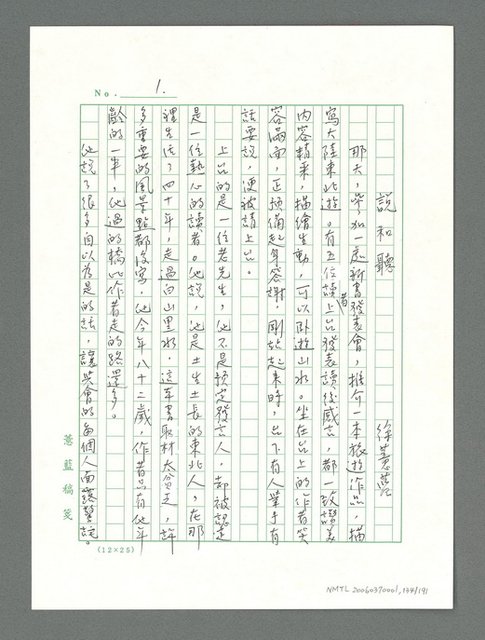 No. 1.
說和聽
徐蕙藍
那天,參加一處新書發表會,推介一本旅遊作品,描
寫大陸東北遊。有五位讀者上台發表讀後感言,都一致讚美
內容精采,描繪生動,可以臥遊山水。坐在台上的作者笑
容滿面,正預備起身答謝,剛站起來時,台下有人舉手有
話要說,便被請上台。
上台的是一位老先生,他不是預定發言人,却被認定
是一位熱心的讀者。他說,他是土生土長的東北人,在那
裡生活了四十年,走過白山黑水。這本書取材太貧乏,許
多重要的風景點都沒寫,他今年八十二歲,作者只有他年
齡的一半,他過的橋比作者走的路還多。
他說了很多自以為是的話,讓與會的每個人面露驚詫。
蕙藍稿箋
(12×25)
NMTL20060370001,134/191